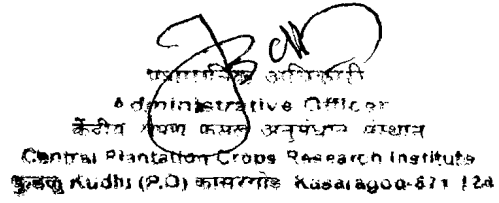 प्रशासनिक अधिकारी
Administrative Officer
केंद्रीय रोपण फसल अनुसंधान संस्थान
Central Plantation Crops Research Institute
कुडलु Kudlu (P.O) कासरगोड Kasaragod-671 124